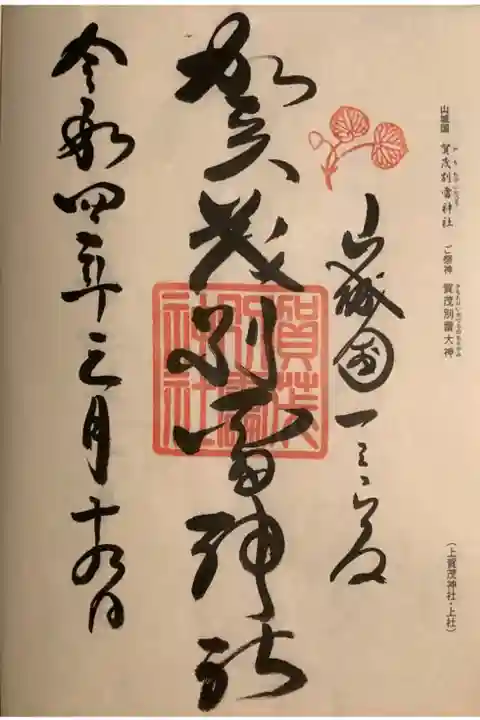 山城国 賀茂別雷神社 ご祭神 賀茂別雷大神
(上賀茂神社・上社)
山城国一之宮
賀茂別雷神社
賀茂
別雷
神社
令和四年三月十九日